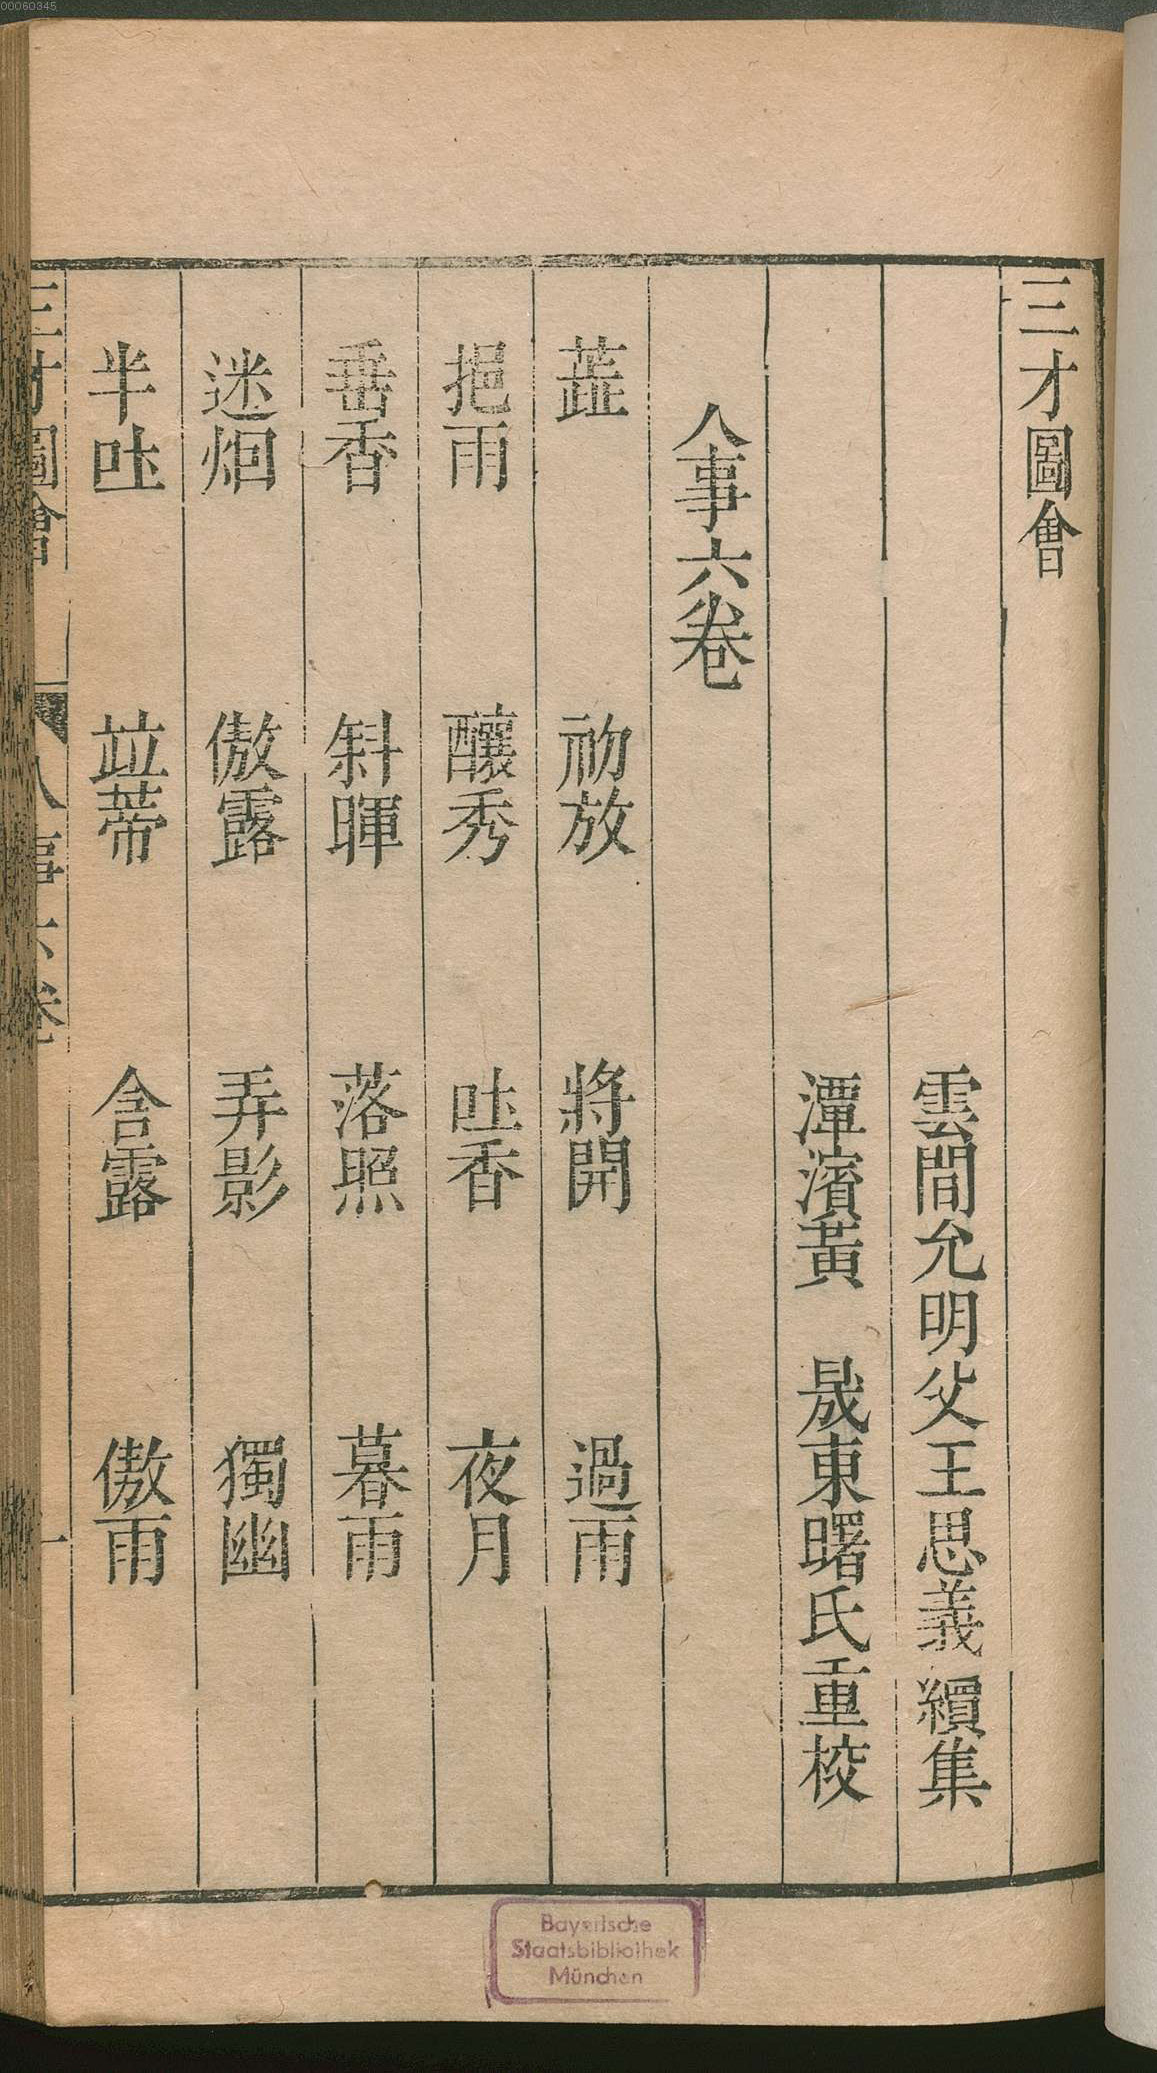 00060345
三才圖會
雲間允明父王思義續集
潭濱黃 晟東曙氏重校
人事六卷
蕋 初放 將開 過雨
挹雨 釀秀 吐香 夜月
垂香 斜暉 落照 暮雨
迷烟 傲露 弄影 獨幽
半吐 竝蒂 含露 傲雨
三才圖會 人事六卷 一
Bayerische
Staatsbibliothek
München